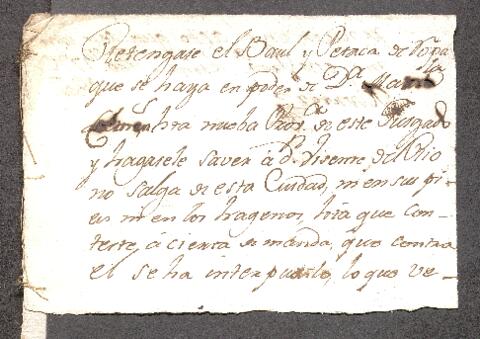 Retengase el Baul y Petaca de Ropa
que se haya en poder de Da. Maria
hta nueba Prov.a de este Juzgado
y hagasele saver a dn. Vicente del Rio
no salga de esta Ciudad, ni en sus pi-
es ni en los hagenos, hta que con-
teste, a cierta demanda, que contra
el se ha interpuesto, lo que ve-